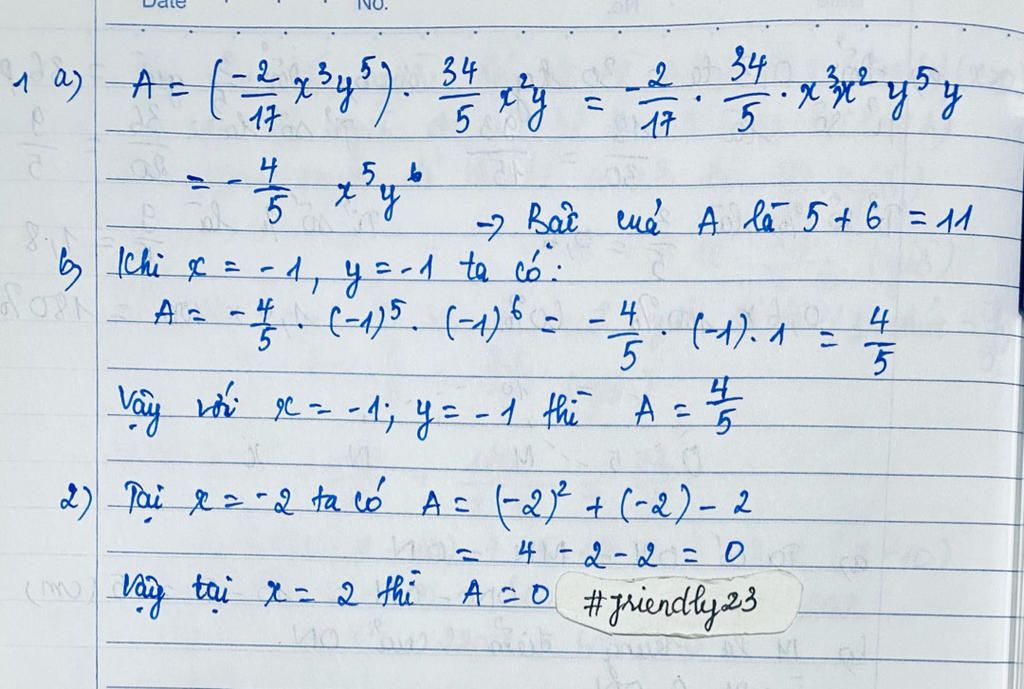 Date No.
1 a) A = (-2/17 x³y⁵) · 34/5 x²y = -2/17 · 34/5 · x³x² y⁵y
= -4/5 x⁵y⁶
→ Bậc của A là 5 + 6 = 11
b) Khi x = -1, y = -1 ta có:
A = -4/5 · (-1)⁵ · (-1)⁶ = -4/5 · (-1) · 1 = 4/5
Vậy với x = -1; y = -1 thì A = 4/5
2) Tại x = -2 ta có A = (-2)² + (-2) - 2
= 4 - 2 - 2 = 0
Vậy tại x = 2 thì A = 0 #friendly23